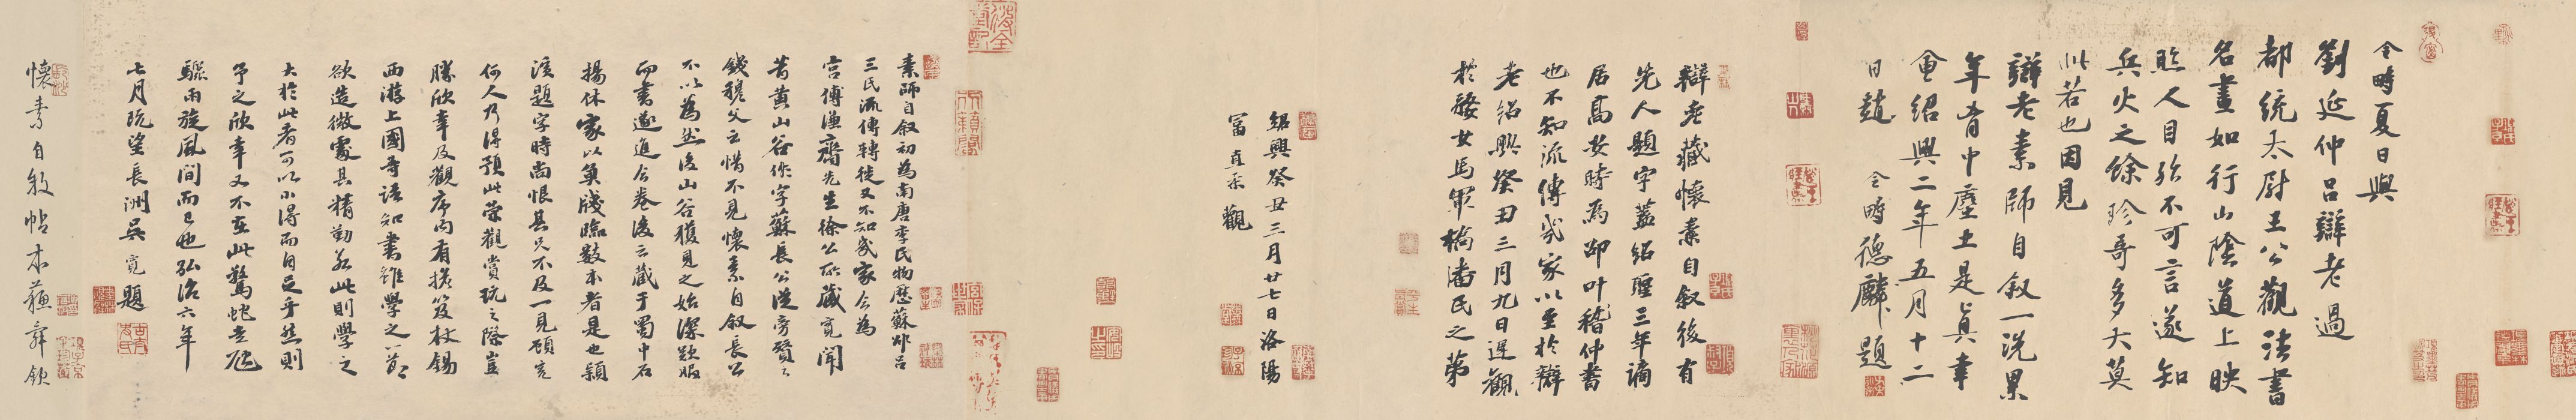 令畤夏日與
劉延仲呂辯老過
都統太尉王公觀法書
名畫如行山陰道上映
照人目殆不可言遂知
兵火之餘珍哥多大莫
此若也因見
辯老素師自叙一洗累
年胷中塵土是真幸
會紹興二年五月十二
日趙 令畤德麟題
辯老藏懷素自叙後有
先人題字蓋紹聖三年謫
居高安時為邵叶稽仲書
也不知流傳幾家以至於辯
老紹興癸丑三月九日遲觀
於婺女馬軍橋潘氏之第
紹興癸丑三月廿七日洛陽
富直柔觀
素師自叙初為南唐李氏物歷蘇邵呂
三氏流傳轉徙又不知幾家今為
宮傅謙齋先生徐公所藏寬聞
昔黃山谷作字蘇長公從旁贊之
錢穆父云惜不見懷素自叙長公
不以為然後山谷獲見之始深歎服
而書遂進今卷後云藏于蜀中石
揚休家以奠牋臨數本者是也顧
後題字時尚恨其父不及一見顧寬
何人乃得預此榮觀賞玩之際豈
勝欣幸及觀序內有擔笈杖錫
西遊上國等語知書雖學之
欲造微處其精勤若此則學之
大於此者可以小得而自足乎然則
予之欣幸又不在此驚蛇走虺
驟雨旋風間而已也弘治六年
七月既望長洲吳寬題
懷素自敘帖本蘓舜欽